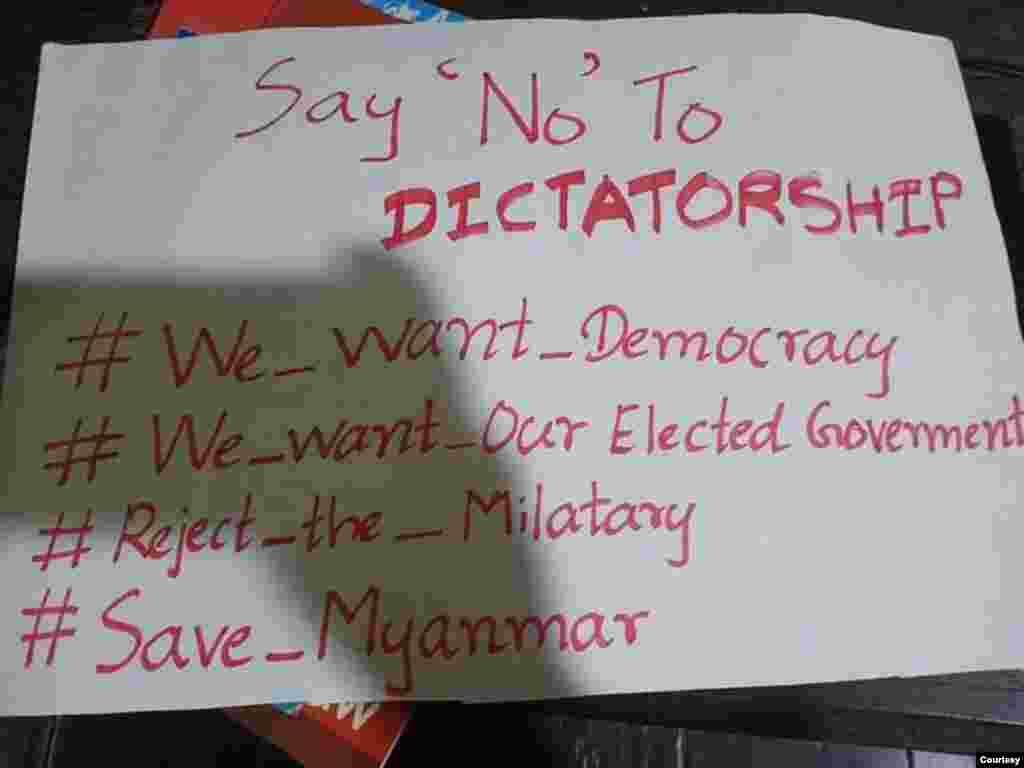 Say 'No' To
DICTATORSHIP
# We_want_Democracy
# We_want_Our Elected Goverment
# Reject_the_Milatary
# Save_Myanmar
Courtesy